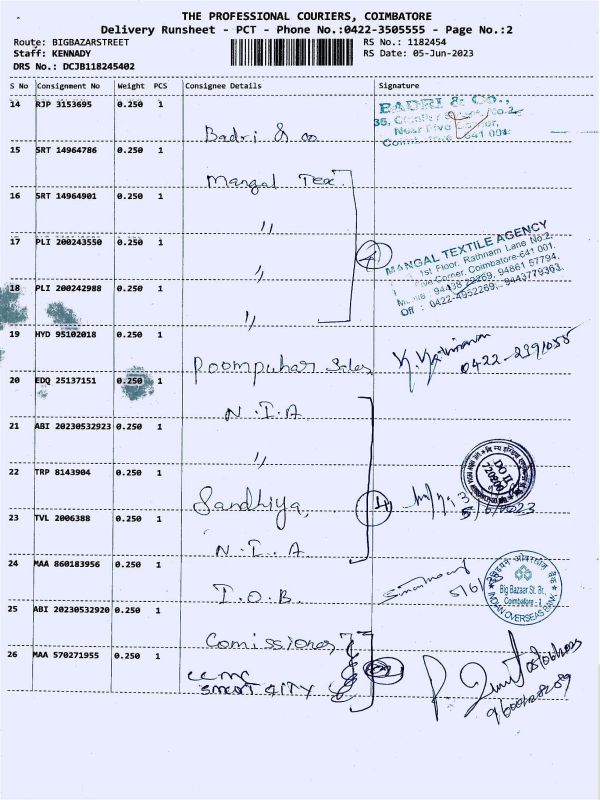 THE PROFESSIONAL COURIERS, COIMBATORE
Delivery Runsheet - PCT - Phone No.:0422-3505555 - Page No.:2
Route: BIGBAZARSTREET
RS No.: 1182454
Staff: KENNADY
RS Date: 05-Jun-2023
DRS No.: DCJB118245402
S No Consignment No Weight PCS Consignee Details Signature
14 RJP 3153695 0.250 1
Badri & co
BADRI & Co.,
15 SRT 14964786 0.250 1
Mangal Tex
16 SRT 14964901 0.250 1
"
17 PLI 200243550 0.250 1
"
MANGAL TEXTILE AGENCY
1st Floor, Rathnam Lane No:2,
Five Corner, Coimbatore-641 001.
94861 57794,
Off : 0422-4952269, 9443779363.
18 PLI 200242988 0.250 1
"
19 HYD 95102018 0.250 1
Poompuhar Sales
0422-2391055
20 EDQ 25137151 0.250 1
N.I.A
21 ABI 20230532923 0.250 1
"
22 TRP 8143904 0.250 1
Sandhiya,
DO II
720900
23 TVL 2006388 0.250 1
N.I.A
24 MAA 860183956 0.250 1
I.O.B
5/6/
Big Bazaar St. Br.
Coimbatore - 1
INDIAN OVERSEAS BANK
25 ABI 20230532920 0.250 1
Comissioner
26 MAA 570271955 0.250 1
ccmc
smart city